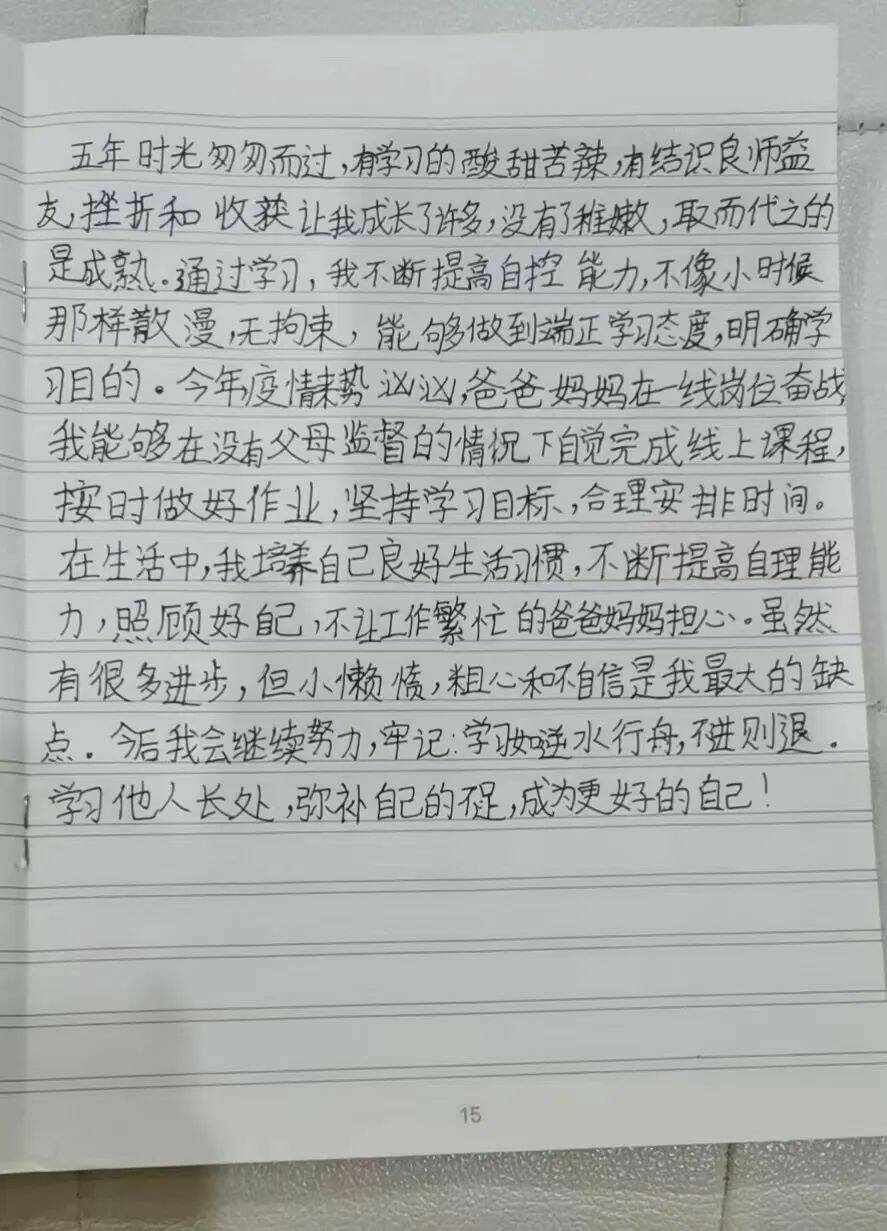 五年时光匆匆而过，有学习的酸甜苦辣，有结识良师益
友，挫折和收获让我成长了许多，没有了稚嫩，取而代之的
是成熟。通过学习，我不断提高自控能力，不像小时候
那样散漫，无拘束，能够做到端正学习态度，明确学
习目的。今年疫情来势汹汹，爸爸妈妈在一线岗位奋战，
我能够在没有父母监督的情况下自觉完成线上课程，
按时做好作业，坚持学习目标，合理安排时间。
在生活中，我培养自己良好生活习惯，不断提高自理能
力，照顾好自己，不让工作繁忙的爸爸妈妈担心。虽然
有很多进步，但小懒惰，粗心和不自信是我最大的缺
点。今后我会继续努力，牢记：学习如逆水行舟，不进则退。
学习他人长处，弥补自己的不足，成为更好的自己！
15